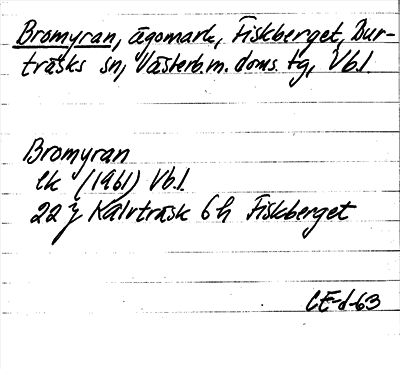 Bromyran, ägomark, Fiskberget, Bur-
träsks sn, Västerb.m. doms. tg, Vb.l.
Bromyran
ek (1961) Vb.l.
22 J Kalvträsk 6 h Fiskberget
CE-d-63